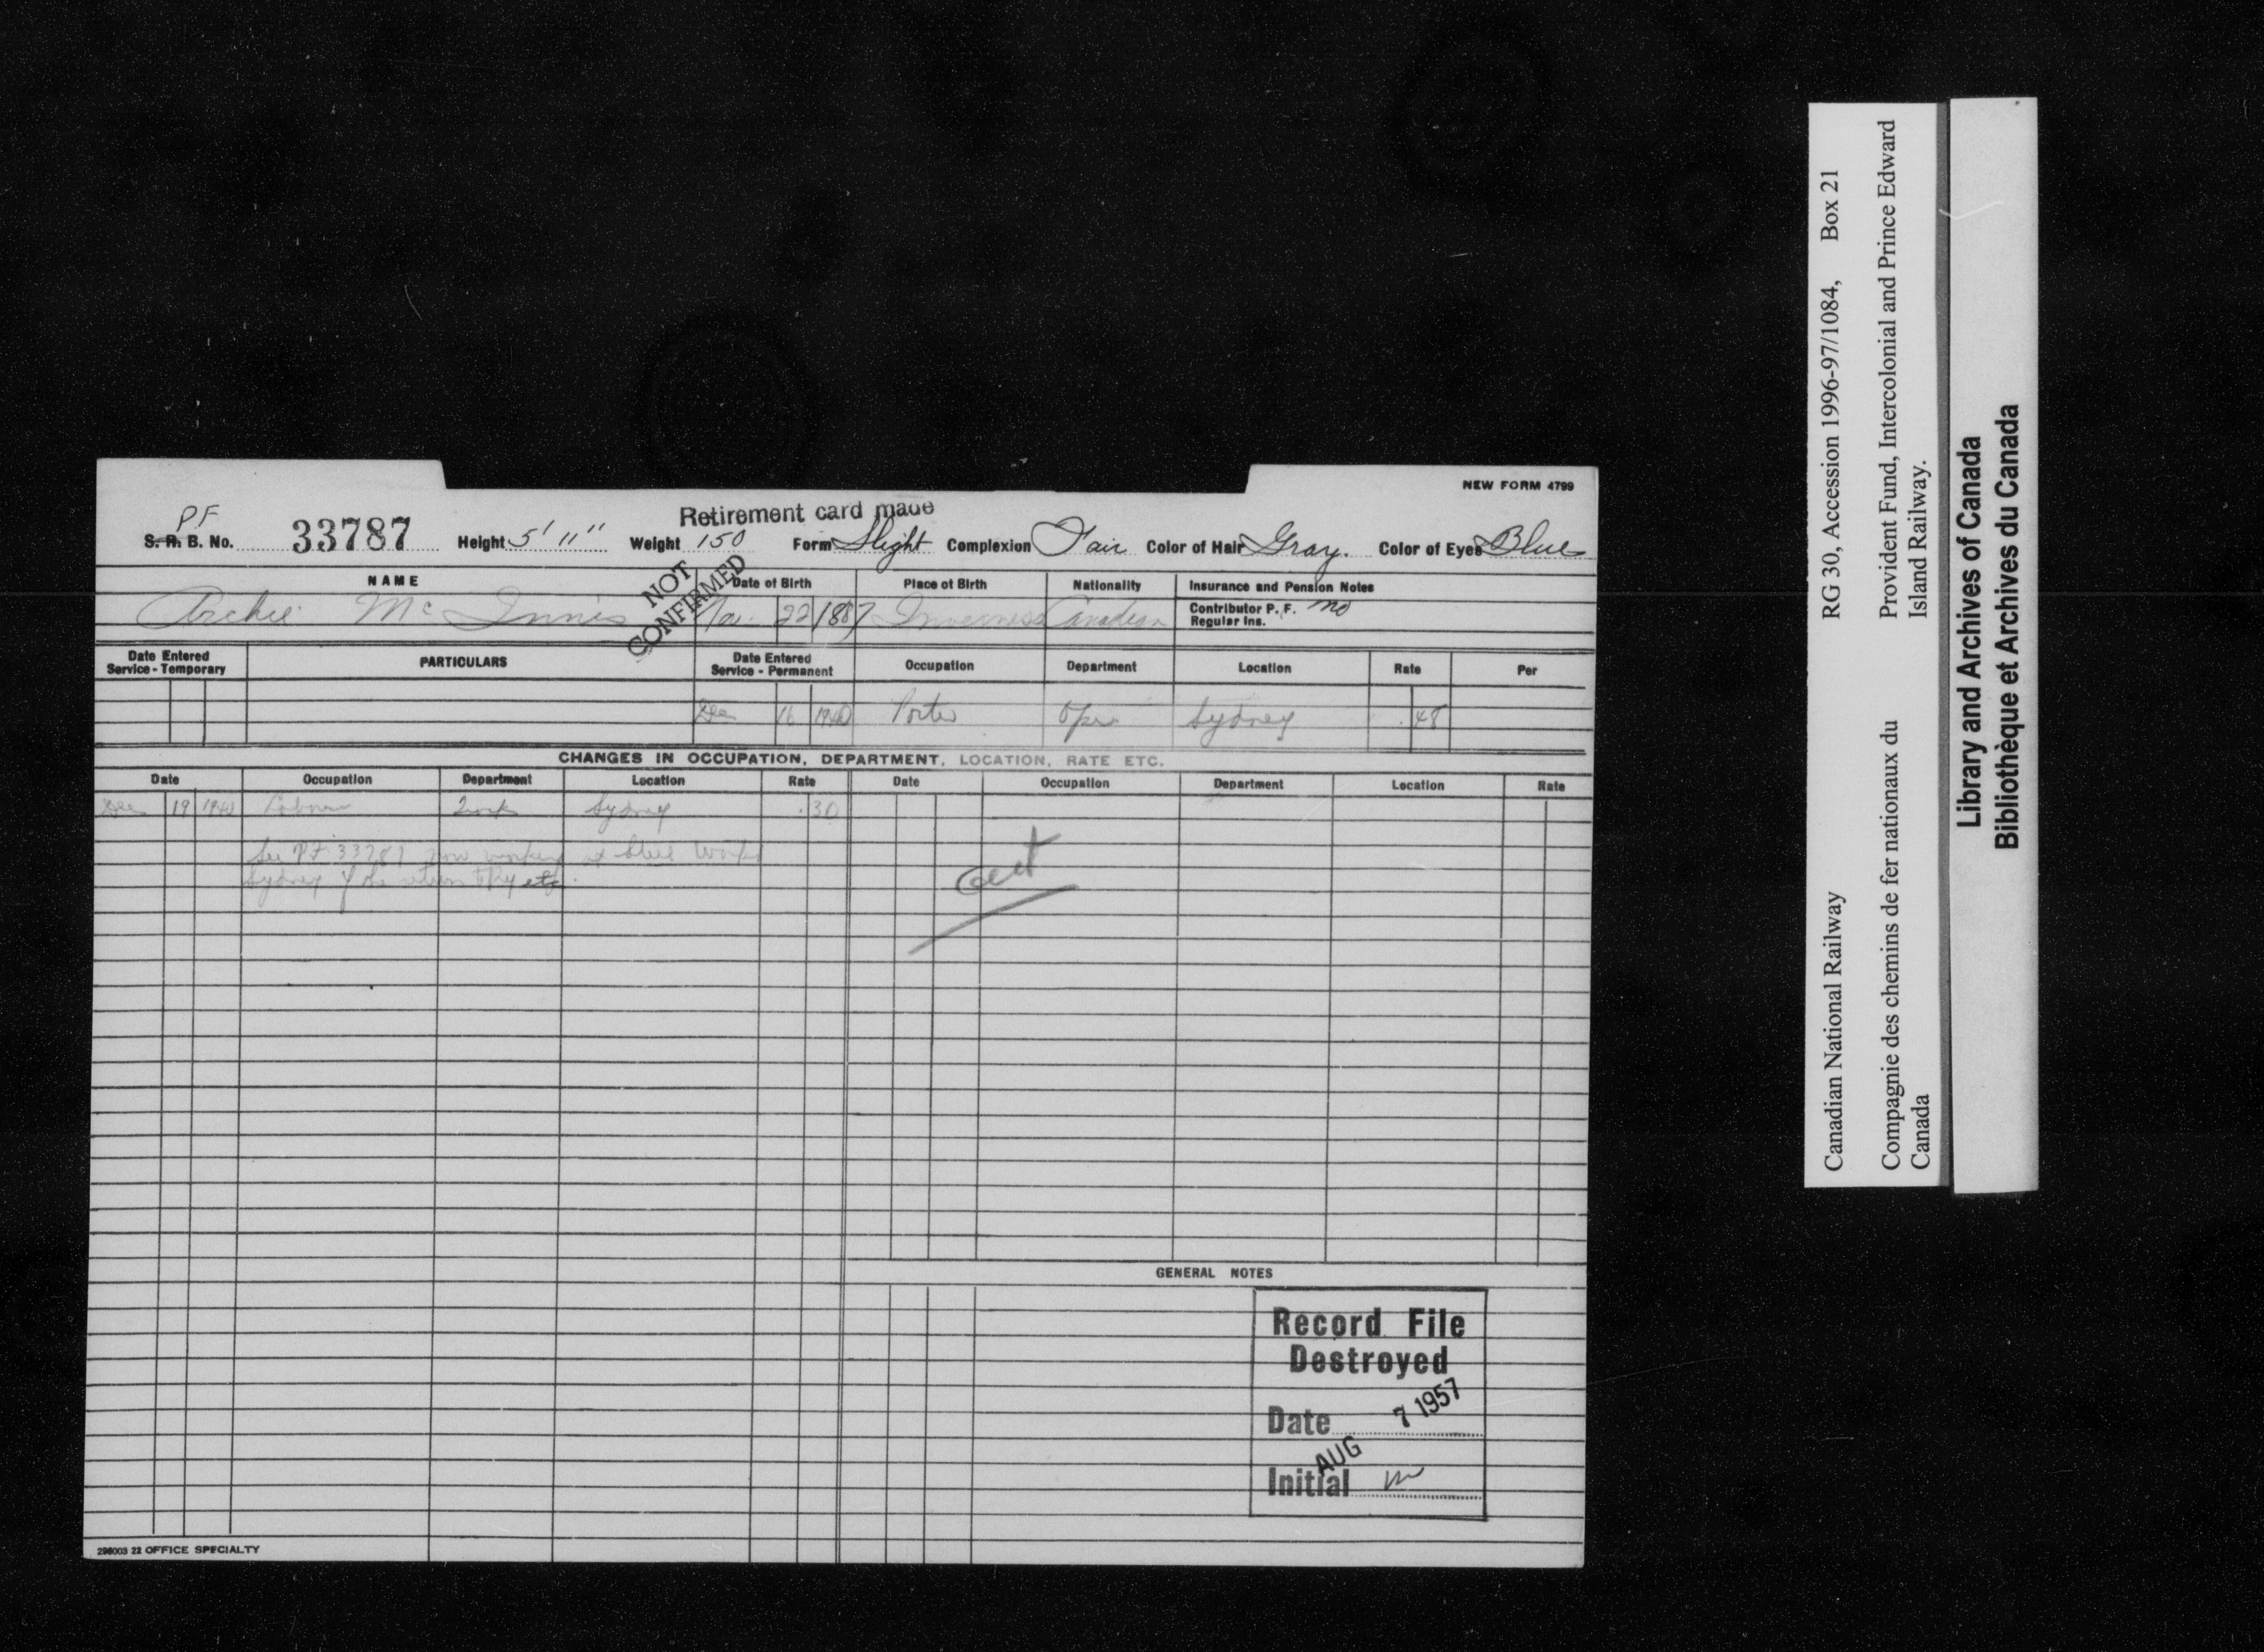 NEW FORM 4799
Retirement card made
PF
S. R. B. No. 33787 Height 5' 11" Weight 150 Form Slight Complexion Fair Color of Hair Gray. Color of Eyes Blue
NAME Date of Birth Place of Birth Nationality Insurance and Pension Notes
NOT CONFIRMED
Archie Mc Innis 22 1887 Inverness Canadian Contributor P. F. no
Regular Ins.
Date Entered Service - Temporary PARTICULARS Date Entered Service - Permanent Occupation Department Location Rate Per
Dec 16 1940 Porter Oper Sydney .48
CHANGES IN OCCUPATION, DEPARTMENT, LOCATION, RATE ETC.
Date Occupation Department Location Rate Date Occupation Department Location Rate
Dec 19 1940 Sydney .30
See PF 33787 now working at Steel Works
Sydney if he return etc.
out
GENERAL NOTES
Record File
Destroyed
Date AUG 7 1957
Initial
296003 22 OFFICE SPECIALTY
Canadian National Railway RG 30, Accession 1996-97/1084, Box 21
Compagnie des chemins de fer nationaux du Provident Fund, Intercolonial and Prince Edward
Canada Island Railway.
Library and Archives of Canada
Bibliothèque et Archives du Canada